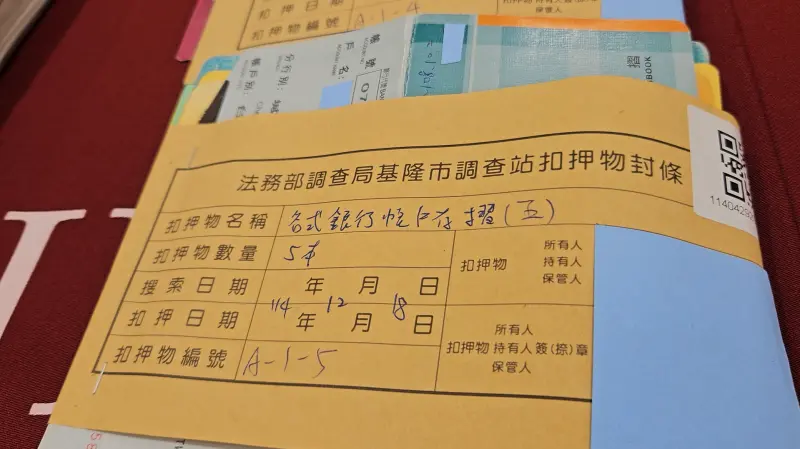 扣押日期
扣押物編號 A-1-4
帳號
戶名:
分行別:
帳戶別:
07
摺
BOOK
法務部調查局基隆市調查站扣押物封條
扣押物名稱 各式銀行帳戶存摺(五)
扣押物數量 5本
扣押物 所有人 持有人 保管人
搜索日期 年 月 日
114 12 18
扣押日期 年 月 日
扣押物編號 A-1-5
扣押物 所有人 持有人 保管人 簽(捺)章
1140429